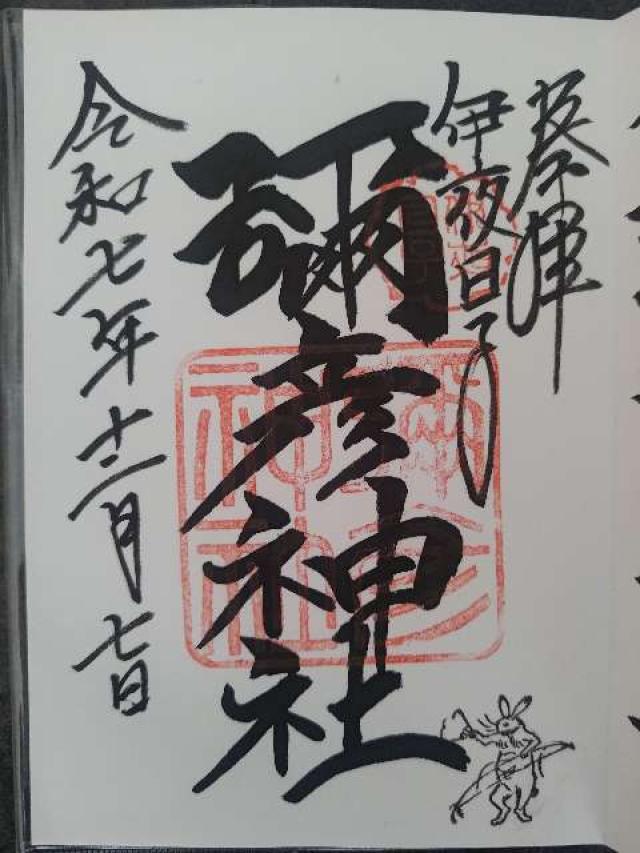 伊夜日子
彌彦神社
彌彦
神社
令和七年十二月七日